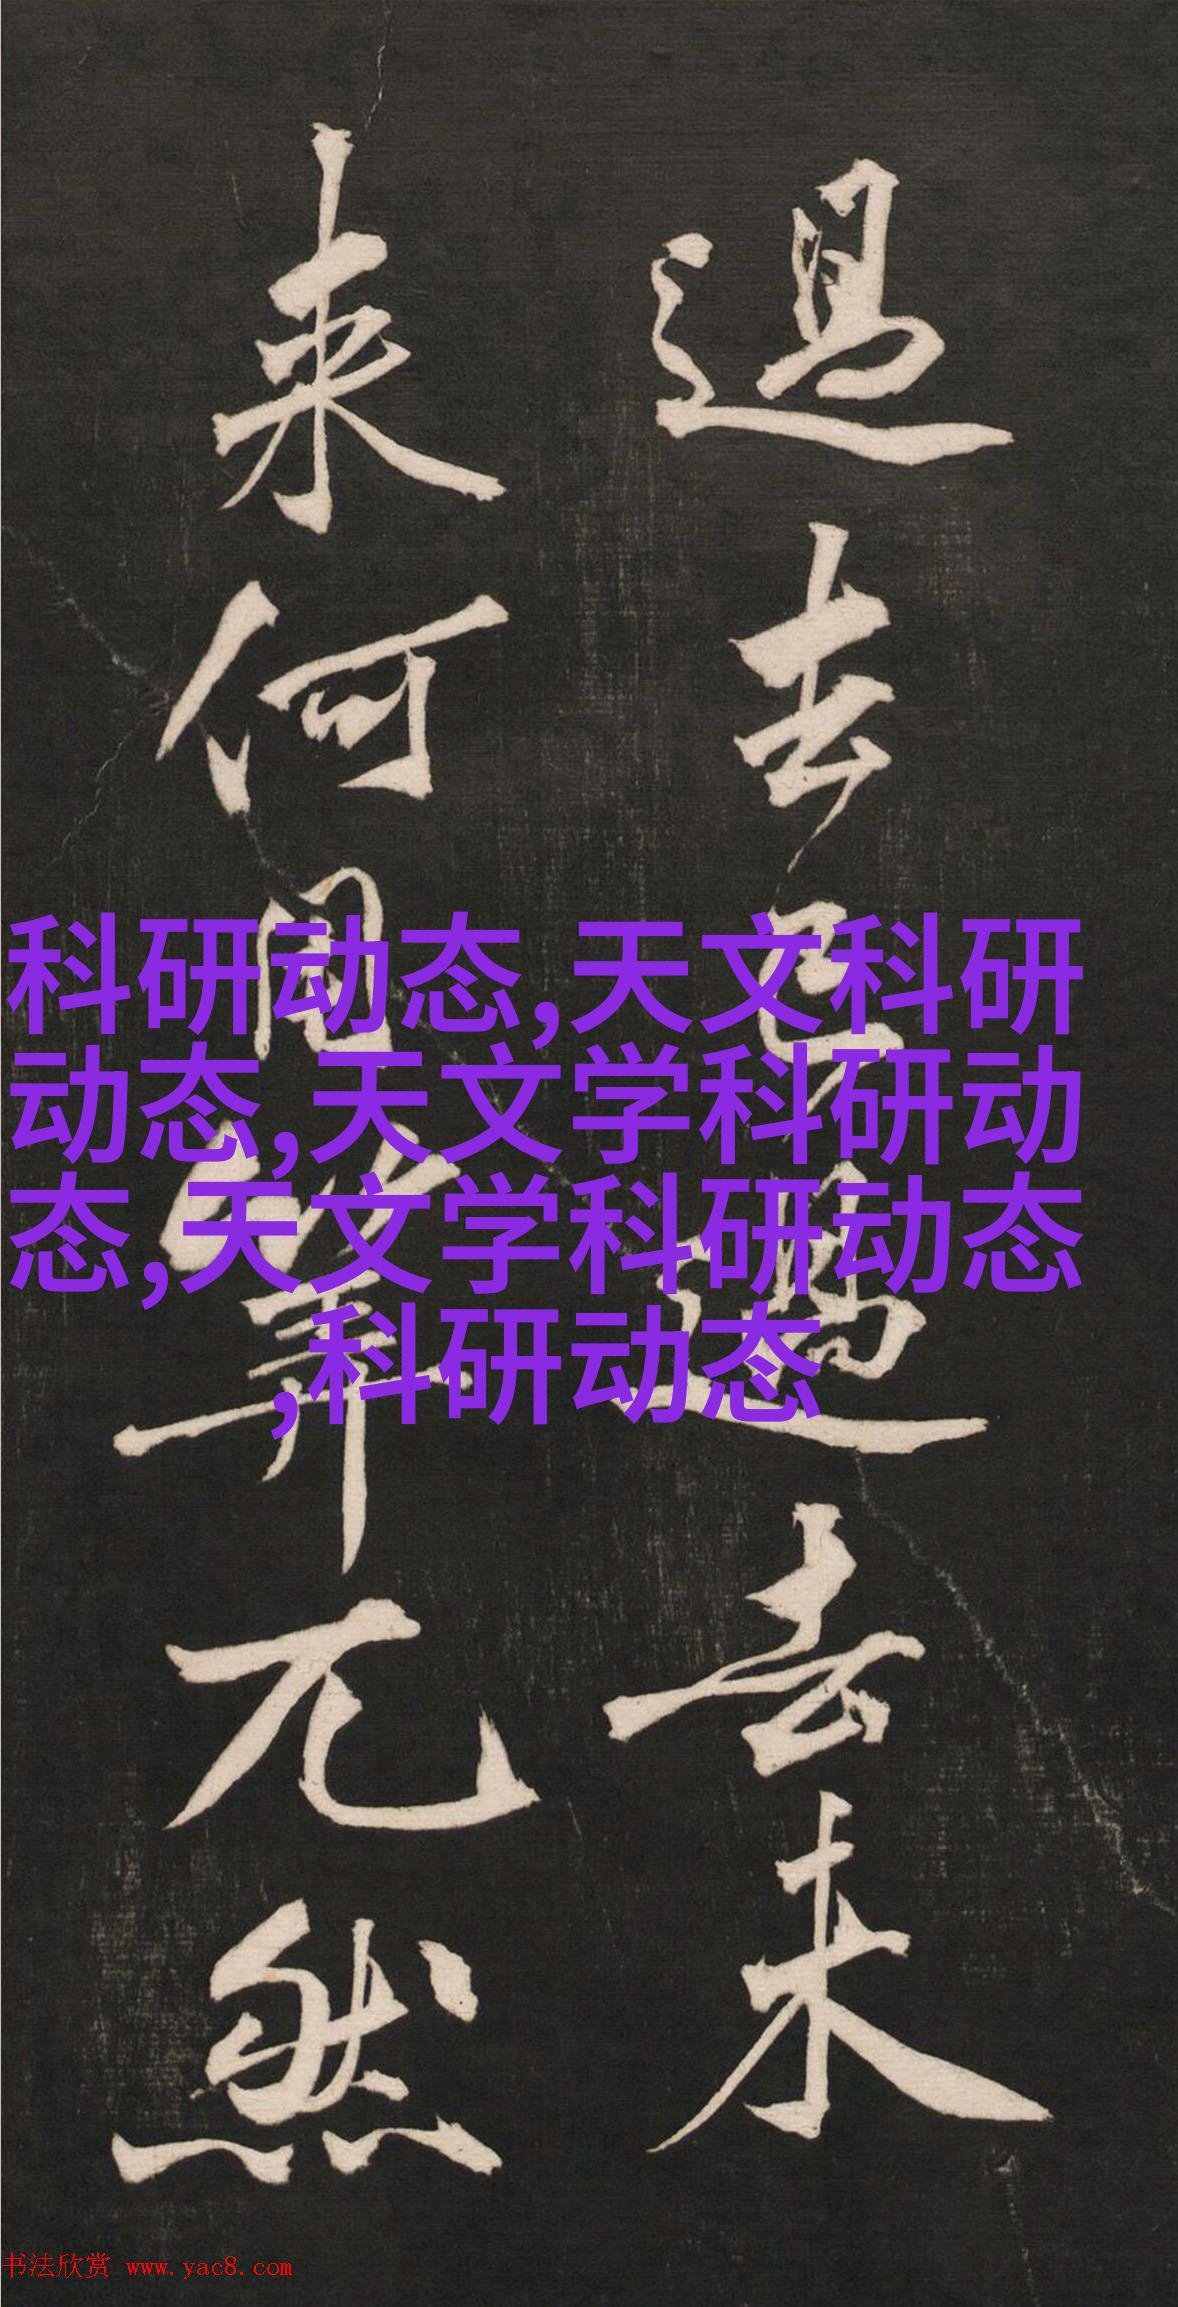 過去已過去未
来何用筭兀然
科研动态,天文科研
动态,天文学科研动
态,天文学科研动态
,科研动态
书法欣赏 www.yac8.com